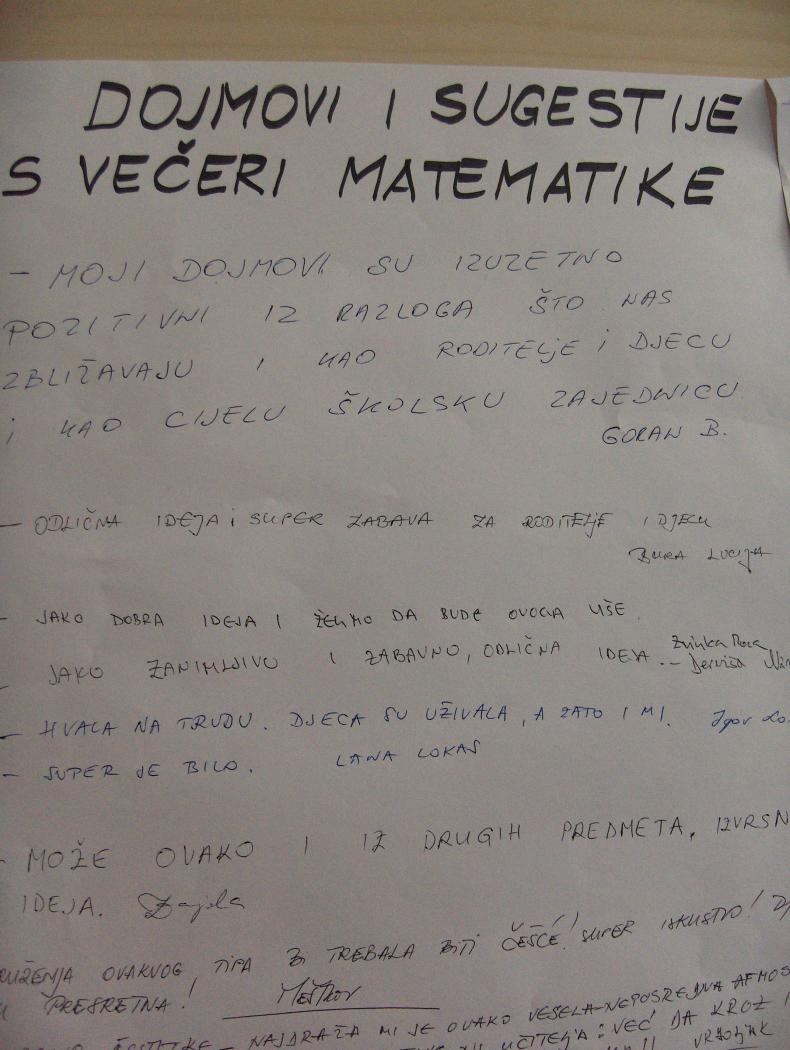 DOJMOVI I SUGESTIJE
S VEČERI MATEMATIKE
- MOJI DOJMOVI SU IZUZETNO
POZITIVNI IZ RAZLOGA ŠTO NAS
ZBLIŽAVAJU I KAO RODITELJE I DJECU
I KAO CIJELU ŠKOLSKU ZAJEDNICU
GORAN B.
- ODLIČNA IDEJA i SUPER ZABAVA ZA RODITELJE I DJECU
BURA LUCIJA
- JAKO DOBRA IDEJA I ŽELIMO DA BUDE OVOGA VIŠE.
- JAKO ZANIMLJIVO I ZABAVNO, ODLIČNA IDEJA. -
- HVALA NA TRUDU. DJECA SU UŽIVALA, A ZATO I MI. Igor
- SUPER JE BILO. LANA LOKAS
- MOŽE OVAKO I IZ DRUGIH PREDMETA, IZVRSN
IDEJA.
OVAKVOG TIPA BI TREBALA BITI ČEŠĆE! SUPER ISKUSTVO!
PRESRETNA!
NAJDRAŽA MI JE OVAKO VESELA-NEPOSREDNA ATMOS
VEĆ DA KROZ